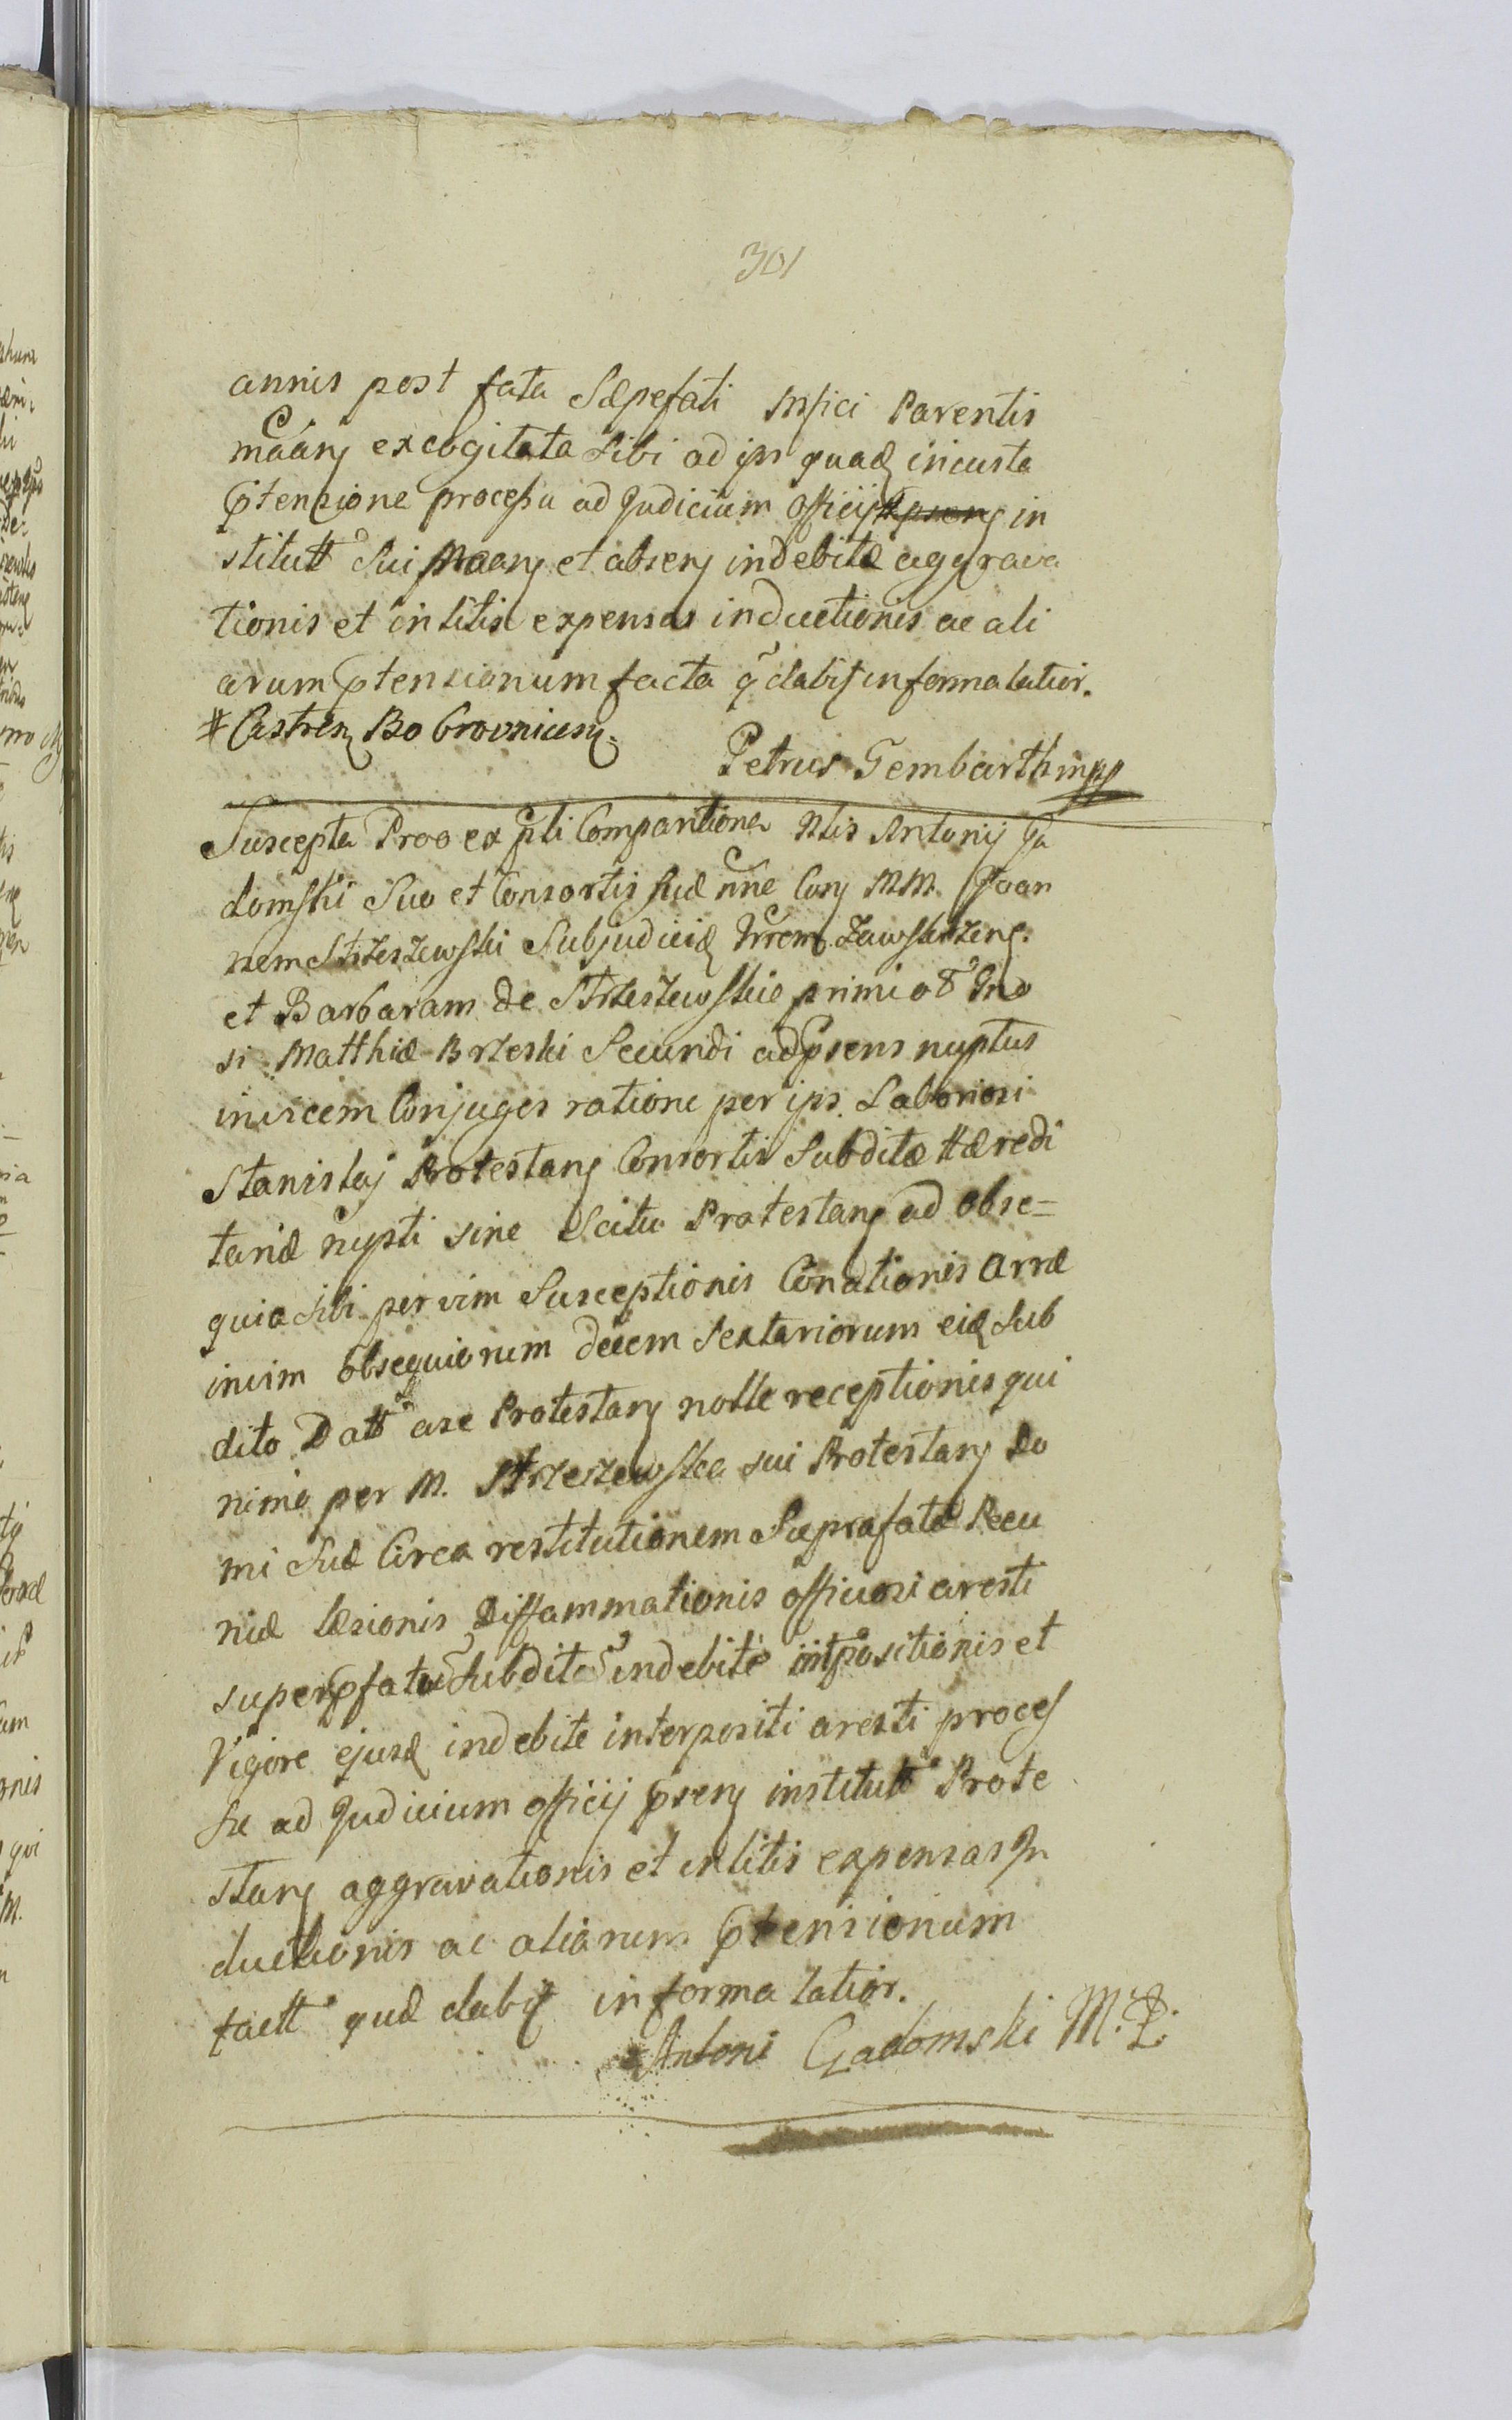 301
annis post fata Sæpefati Mfici Parentis
maãny excogitata Sibi ad ips quad iniusta
ptensione processu ad Judicium Officij # in
stitutt Sui Maany et abseny indebitæ aggrava
tionis et in litis expensas inductionis ac ali
arum ptensionum facta q̃ dabit in forma latior.
# Castren Bobrovnicen.
Petrus Gembarth mpp
Suscepta Proo ex pti Comparitione Nlis Antonij Ga
domski Suo et Consortis Suæ nne Con MM. Joan
nem Strzeszewski Subjudicid Trrem Zawskrzen.
et Barbaram de Strzeszewskie primi olt Gno
si Matthiæ Brzeski Secundi ad psens nuptus
invicem Conjuges ratione per ips Laboriosi
Stanislaj Protestany Consortis Subditæ Hæredi
tariæ nupti sine Scitu Protestany ad obse=
quia sibi per vim Susceptionis Conationis Arræ
in vim obsequiorum decem Sextariorum eid Sub
dito Datt ase Protestany nolle receptionis qui
nimo per M. Strzeszewska sui Protestany Do
mi Suæ Circa restitutionem Suprafatæ Pecu
niæ læsionis Diffammationis officiosi aresti
super pfatã Subditã indebite intpositionis et
Vigore ejusd indebite interpositi aresti proces
su ad Judicium officij pseny institutt Prote
stany aggravationis et in litis expensas In
ductionis ac aliarum ptensionum
factt quæ dabit in forma latior.
Antoni Gadomski M. P.